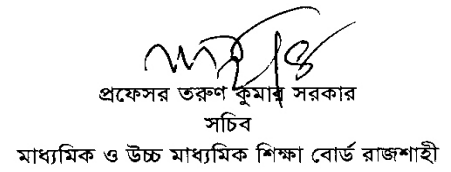 প্রফেসর তরুণ কুমার সরকার
সচিব
মাধ্যমিক ও উচ্চ মাধ্যমিক শিক্ষা বোর্ড রাজশাহী